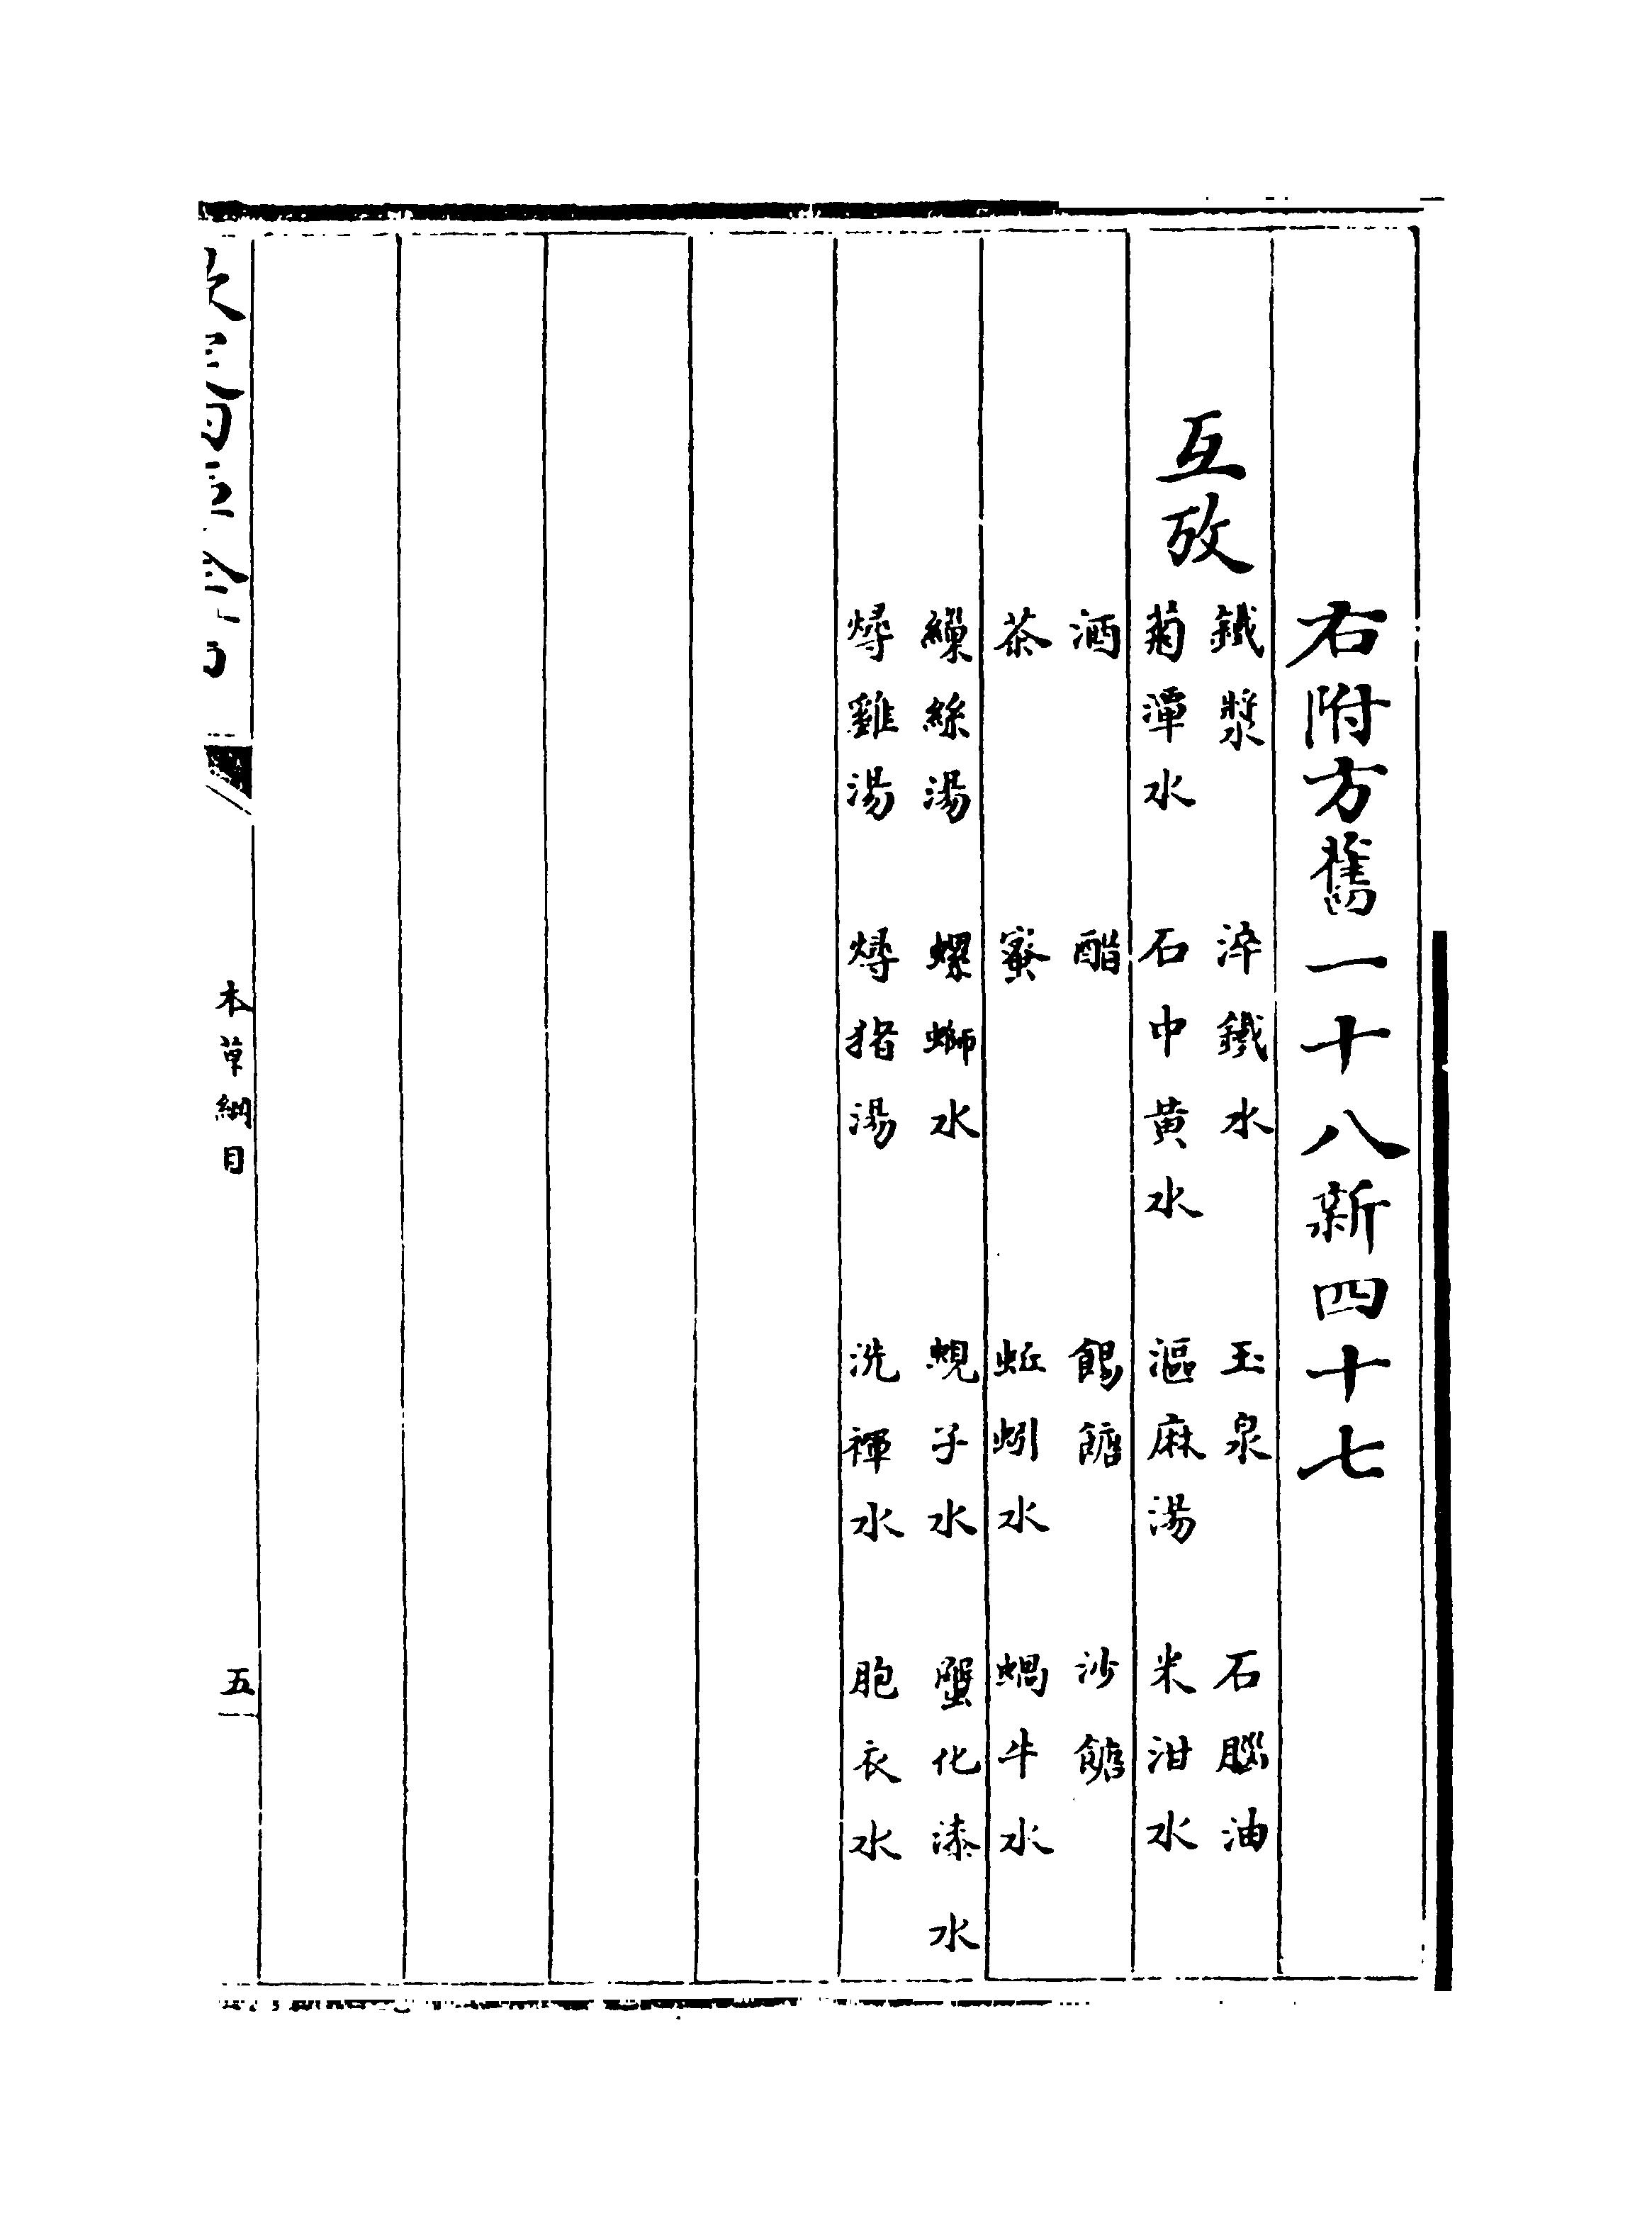 右附方舊一十八新四十七
互攷
鐵漿 淬鐵水 玉泉 石腦油
菊潭水 石中黄水 漚麻湯 米泔水
酒 醋 餳餹 沙餹
茶 蜜 蚯蚓水 蝸牛水
繅絲湯 螺螄水 蜆子水 蟹化漆水
燖雞湯 燖猪湯 洗褌水 胞衣水
本草綱目
五